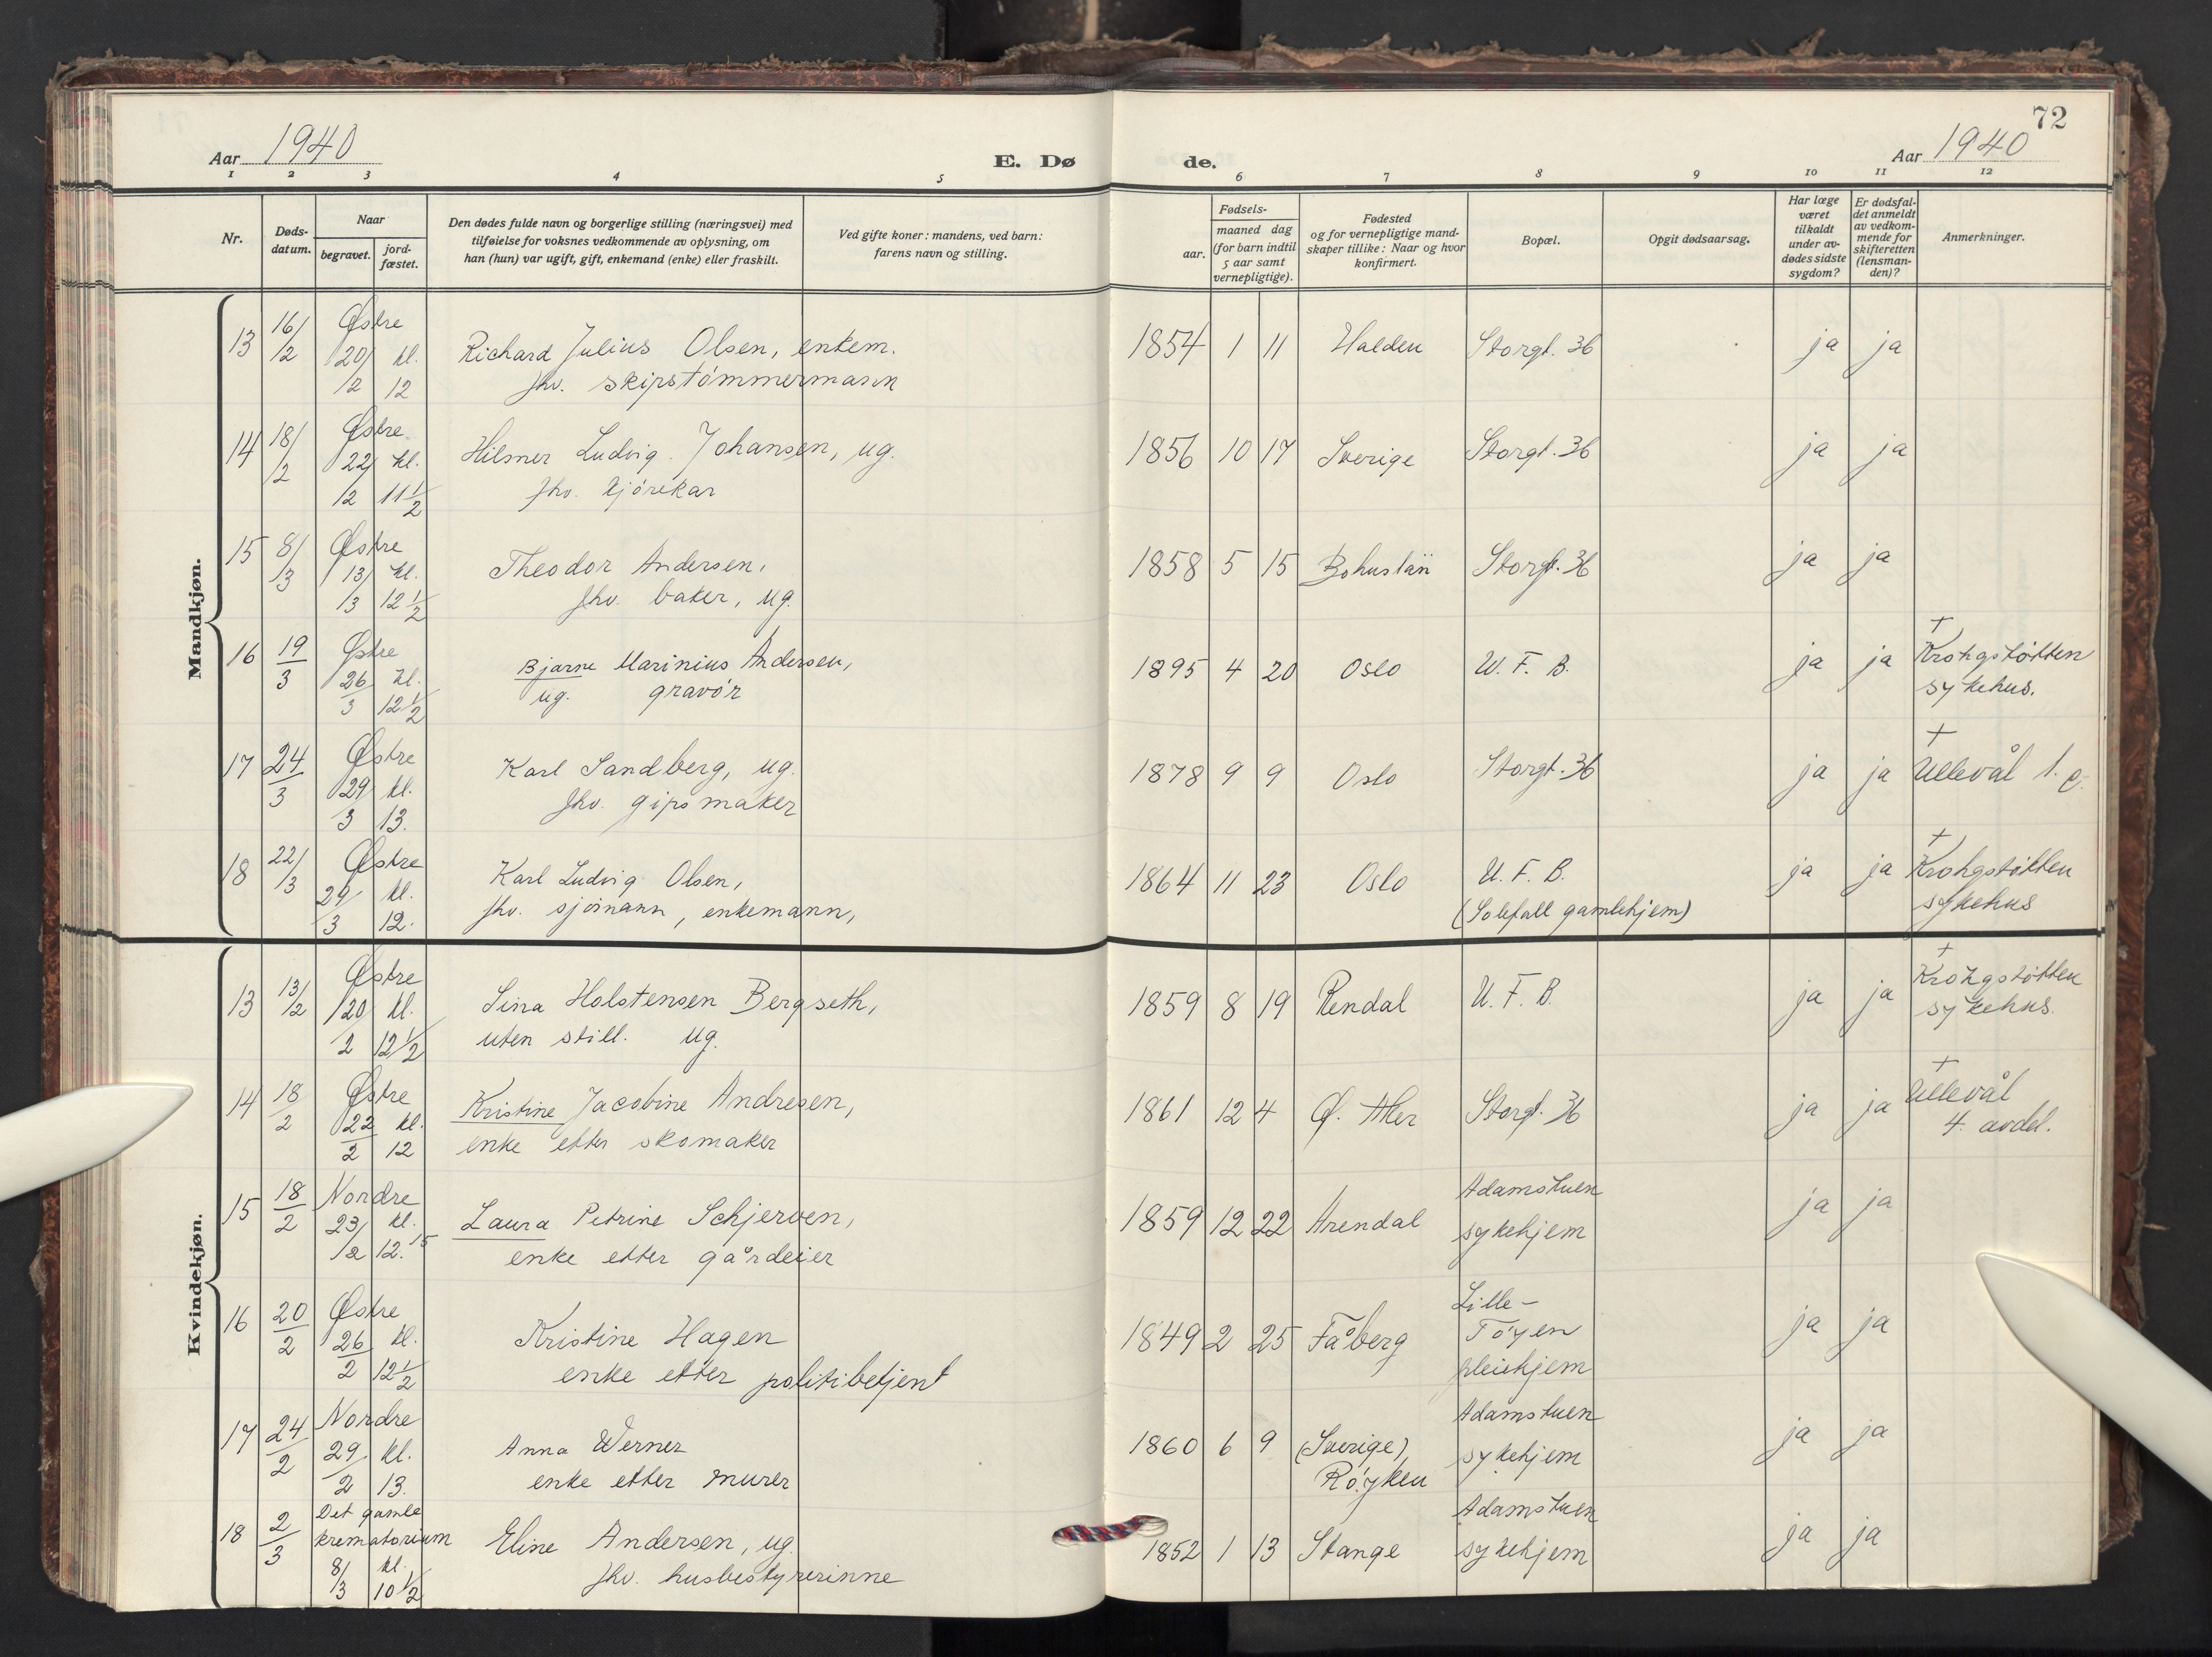 72
Aar 1940
E. Døde.
Aar 1940
1 2 3 4 5 6 7 8 9 10 11 12
Nr.
Døds-
datum.
Naar
begravet.
jord-
fæstet.
Den dødes fulde navn og borgerlige stilling (næringsvei) med
tilføielse for voksnes vedkommende av oplysning, om
han (hun) var ugift, gift, enkemand (enke) eller fraskilt.
Ved gifte koner: mandens, ved barn:
farens navn og stilling.
Fødsels-
aar.
maaned dag
(for barn indtil
5 aar samt
vernepligtige).
Fødested
og for vernepligtige mand-
skaper tillike: Naar og hvor
konfirmert.
Bopæl.
Opgit dødsaarsag.
Har læge
været
tilkaldt
under av-
dødes sidste
sygdom?
Er dødsfal-
det anmeldt
av vedkom-
mende for
skifteretten
(lensman-
den)?
Anmerkninger.
Mandkjøn.
13 16/2 Østre 20/2 kl. 12
Richard Julius Olsen, enkem.
fhv. skipstømmermann
1854 1 11 Halden Storgt. 36 ja ja
14 18/2 Østre 22/2 kl. 11 1/2
Hilmer Ludvig Johansen, ug.
fhv. kjørekar
1856 10 17 Sverige Storgt. 36 ja ja
15 8/3 Østre 13/3 kl. 12 1/2
Theodor Andersen,
fhv. baker, ug.
1858 5 15 Bohuslän Storgt. 36 ja ja
16 19/3 Østre 26/3 kl. 12 1/2
Bjarne Marinius Andersen,
ug. gravør
1895 4 20 Oslo U. F. B. ja ja
+
Krohgstøtten
sykehus.
17 24/3 Østre 29/3 kl. 13.
Karl Sandberg, ug.
fhv. gipsmaker
1878 9 9 Oslo Storgt. 36 ja ja
+
Ullevål 1.
18 22/3 Østre 29/3 kl. 12.
Karl Ludvig Olsen,
fhv. sjømann, enkemann,
1864 11 23 Oslo U. F. B.
(Solefall gamlehjem)
ja ja
+
Krohgstøtten
sykehus
Kvindekjøn.
13 13/2 Østre 20/2 kl. 12 1/2
Sina Holstensen Bergseth,
uten still. ug.
1859 8 19 Rendal U. F. B. ja ja
+
Krohgstøtten
sykehus.
14 18/2 Østre 22/2 kl. 12
Kristine Jacobine Andresen,
enke etter skomaker
1861 12 4 Ø. Aker Storgt. 36 ja ja
+
Ullevål
4. avdel.
15 18/2 Nordre 23/2 kl. 12.15
Laura Petrine Schjerven,
enke etter gårdeier
1859 12 22 Arendal
Adamstuen
sykehjem
ja ja
16 20/2 Østre 26/2 kl. 12 1/2
Kristine Hagen
enke etter politibetjent
1849 2 25 Fåberg
Lille-
Tøyen
pleiehjem
ja ja
17 24/2 Nordre 29/2 kl. 13.
Anna Werner
enke etter murer
1860 6 9 (Sverige),
Røyken
Adamstuen
sykehjem
ja ja
18 2/3 Det gamle
krematorium
8/3 kl. 10 1/2
Eline Andersen, ug.
fhv. husbestyrerinne
1852 1 13 Stange
Adamstuen
sykehjem
ja ja